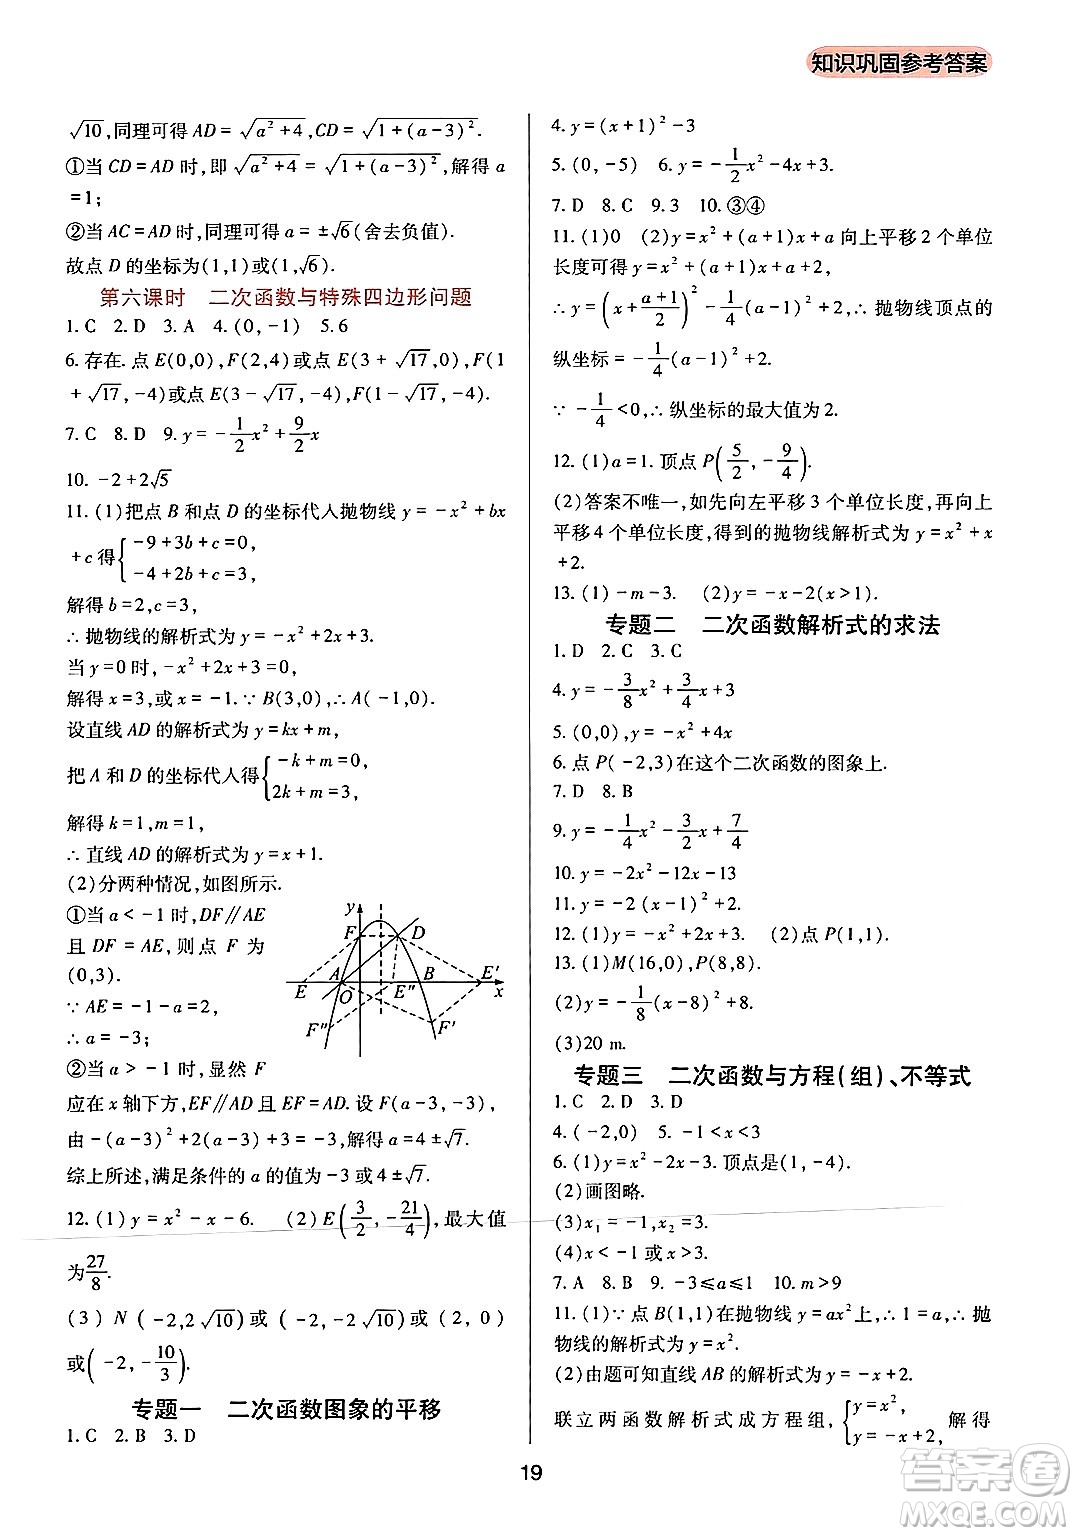 知识巩固参考答案
√10,同理可得 AD=√(a²+4),CD=√(1+(a-3)²).
①当 CD=AD 时,即√(a²+4)=√(1+(a-3)²),解得 a
=1;
②当 AC=AD 时,同理可得 a=±√6(舍去负值).
故点 D 的坐标为(1,1)或(1,√6).
第六课时 二次函数与特殊四边形问题
1. C 2. D 3. A 4. (0,-1) 5. 6
6. 存在. 点 E(0,0),F(2,4)或点 E(3+√17,0),F(1
+√17,-4)或点 E(3-√17,0),F(1-√17,-4).
7. C 8. D 9. y=-1/2x²+9/2x
10. -2+2√5
11. (1)把点 B 和点 D 的坐标代人抛物线 y=-x²+bx
+c 得{-9+3b+c=0,
-4+2b+c=3,
解得 b=2,c=3,
∴抛物线的解析式为 y=-x²+2x+3.
当 y=0 时,-x²+2x+3=0,
解得 x=3,或 x=-1.∵B(3,0),∴A(-1,0).
设直线 AD 的解析式为 y=kx+m,
把 A 和 D 的坐标代人得{-k+m=0,
2k+m=3,
解得 k=1,m=1,
∴直线 AD 的解析式为 y=x+1.
(2)分两种情况,如图所示.
①当 a<-1 时,DF∥AE
且 DF=AE,则点 F 为
(0,3).
∵AE=-1-a=2,
∴a=-3;
②当 a>-1 时,显然 F
y
F D
E A O E″ B E′ x
F″ F′
应在 x 轴下方,EF∥AD 且 EF=AD.设 F(a-3,-3),
由-(a-3)²+2(a-3)+3=-3,解得 a=4±√7.
综上所述,满足条件的 a 的值为-3 或 4±√7.
12. (1)y=x²-x-6. (2)E(3/2,-21/4),最大值
为27/8.
(3) N (-2,2√10)或(-2,-2√10)或(2,0)
或(-2,-10/3).
专题一 二次函数图象的平移
1. C 2. B 3. D
4. y=(x+1)²-3
5. (0,-5) 6. y=-1/2x²-4x+3.
7. D 8. C 9. 3 10. ③④
11. (1)0 (2)y=x²+(a+1)x+a 向上平移 2 个单位
长度可得 y=x²+(a+1)x+a+2,
∴y=(x+(a+1)/2)²-1/4(a-1)²+2,∴抛物线顶点的
纵坐标=-1/4(a-1)²+2.
∵-1/4<0,∴纵坐标的最大值为 2.
12. (1)a=1. 顶点 P(5/2,-9/4).
(2)答案不唯一,如先向左平移 3 个单位长度,再向上
平移 4 个单位长度,得到的抛物线解析式为 y=x²+x
+2.
13. (1)-m-3. (2)y=-x-2(x>1).
专题二 二次函数解析式的求法
1. D 2. C 3. C
4. y=-3/8x²+3/4x+3
5. (0,0),y=-x²+4x
6. 点 P(-2,3)在这个二次函数的图象上.
7. D 8. B
9. y=-1/4x²-3/2x+7/4
10. y=-2x²-12x-13
11. y=-2(x-1)²+2
12. (1)y=-x²+2x+3. (2)点 P(1,1).
13. (1)M(16,0),P(8,8).
(2)y=-1/8(x-8)²+8.
(3)20 m.
专题三 二次函数与方程(组)、不等式
1. C 2. D 3. D
4. (-2,0) 5. -1<x<3
6. (1)y=x²-2x-3. 顶点是(1,-4).
(2)画图略.
(3)x₁=-1,x₂=3.
(4)x<-1 或 x>3.
7. A 8. B 9. -3≤a≤1 10. m>9
11. (1)∵点 B(1,1)在抛物线 y=ax² 上,∴1=a,∴抛
物线的解析式为 y=x².
(2)由题可知直线 AB 的解析式为 y=-x+2.
联立两函数解析式成方程组,{y=x²,
y=-x+2, 解得
19
答案圈
MXQE.COM